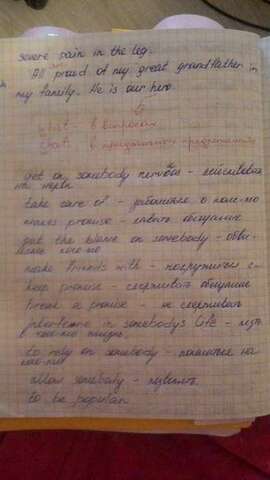 severe pain in the leg.
All are proud of my great grandfather in
my family. He is our hero
what в вопросах
that в придаточных предложениях
get on somebody nervous - действовать
на нервы
take care of - заботиться о ком-то
makes promise - давать обещание
put the blame on somebody - обви-
нять кого-то
make friends with - подружиться с
keep promise - сдерживать обещание
break a promise - не сдерживать
interfere in somebody's life - лезть
в чью-то жизнь
to rely on somebody - полагаться на
кого-то
allow somebody - позволять
to be popular